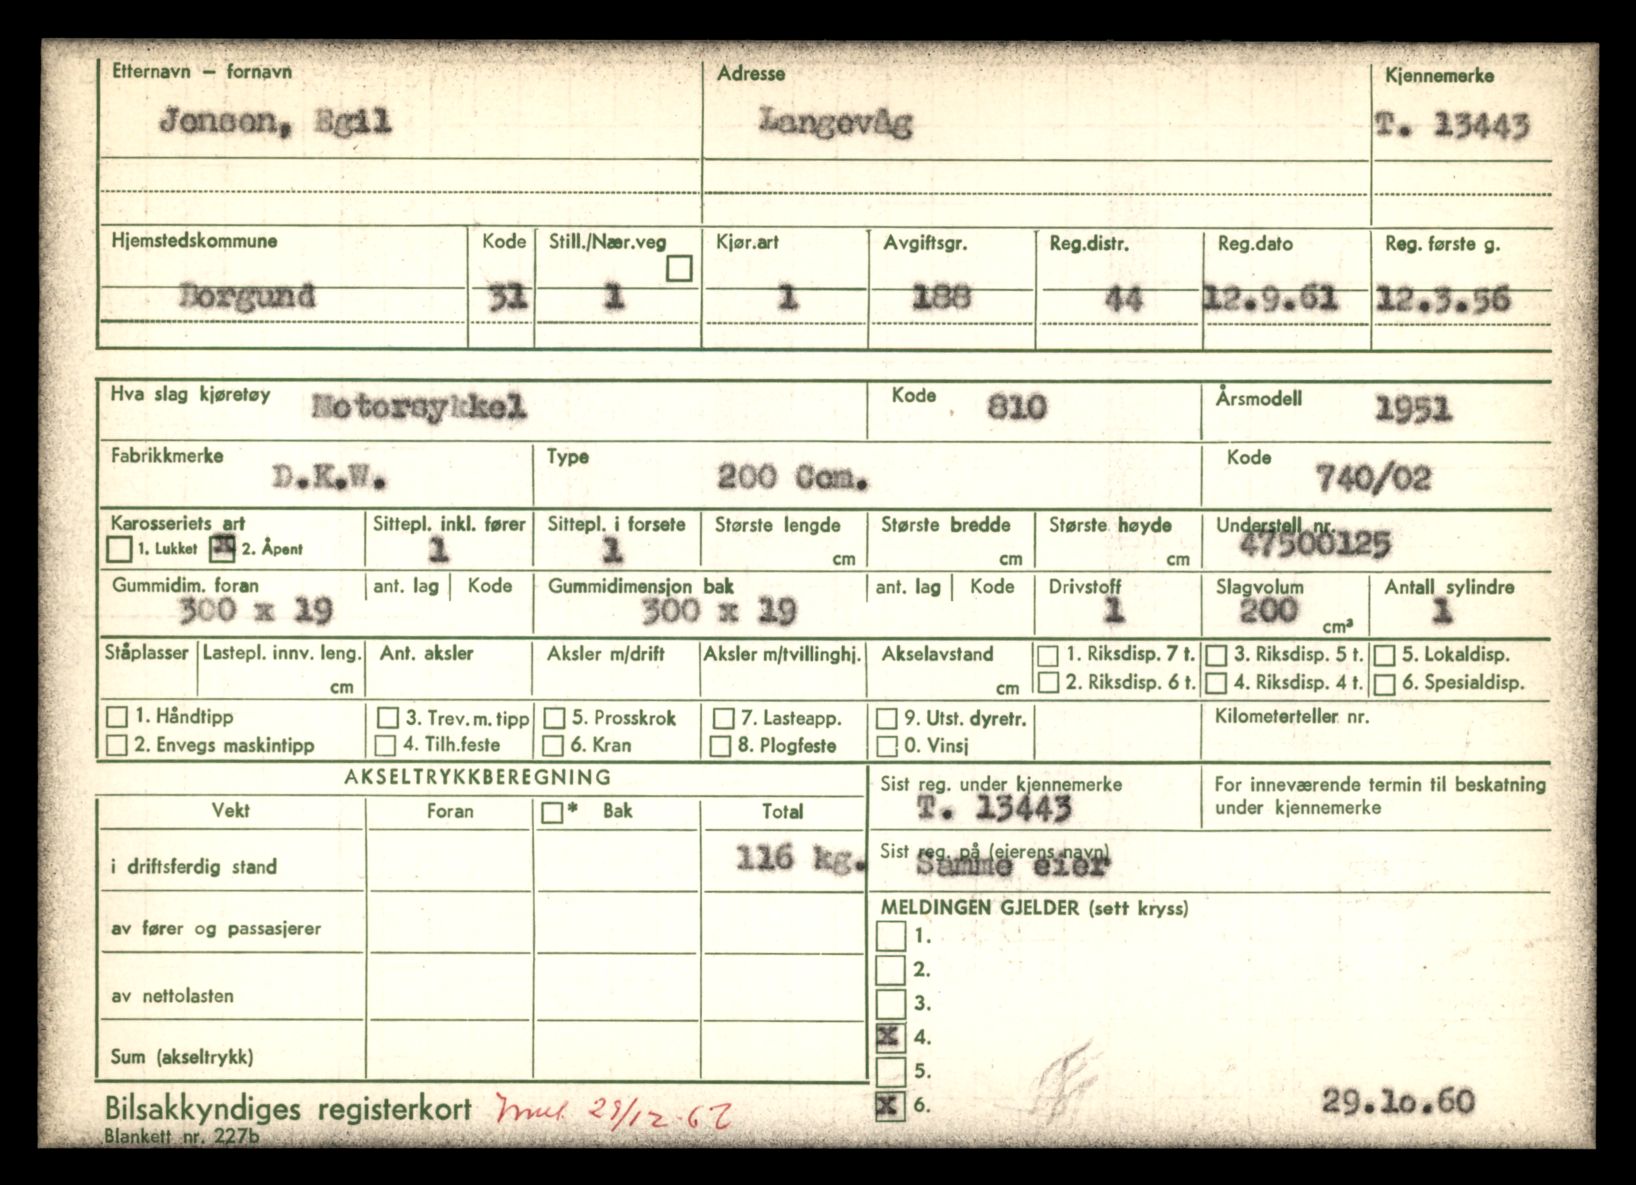 Etternavn – fornavn Adresse Kjennemerke
Jonson, Egil Langevåg T. 13443
Hjemstedskommune Kode Still./Nær.veg Kjør.art Avgiftsgr. Reg.distr. Reg.dato Reg. første g.
Borgund 31 1 1 188 44 12.9.61 12.3.56
Hva slag kjøretøy Motorsykkel Kode 810 Årsmodell 1951
Fabrikkmerke D.K.W. Type 200 Ccm. Kode 740/02
Karosseriets art Sittepl. inkl. fører Sittepl. i forsete Største lengde Største bredde Største høyde Understell nr.
1. Lukket x 2. Åpent 1 1 cm cm cm 47500125
Gummidim. foran ant. lag Kode Gummidimensjon bak ant. lag Kode Drivstoff Slagvolum Antall sylindre
300 x 19 300 x 19 1 200 cm³ 1
Ståplasser Lastepl. innv. leng. Ant. aksler Aksler m/drift Aksler m/tvillinghj. Akselavstand 1. Riksdisp. 7 t. 3. Riksdisp. 5 t. 5. Lokaldisp.
cm cm 2. Riksdisp. 6 t. 4. Riksdisp. 4 t. 6. Spesialdisp.
1. Håndtipp 3. Trev. m. tipp 5. Prosskrok 7. Lasteapp. 9. Utst. dyretr. Kilometerteller nr.
2. Envegs maskintipp 4. Tilh.feste 6. Kran 8. Plogfeste 0. Vinsj
AKSELTRYKKBEREGNING Sist reg. under kjennemerke For inneværende termin til beskatning
T. 13443 under kjennemerke
Vekt Foran * Bak Total
i driftsferdig stand 116 kg. Sist reg. på (eierens navn)
Samme eier
MELDINGEN GJELDER (sett kryss)
av fører og passasjerer 1.
2.
av nettolasten 3.
x 4.
Sum (akseltrykk) 5.
x 6. 29.10.60
Bilsakkyndiges registerkort 29/12-62
Blankett nr. 227b